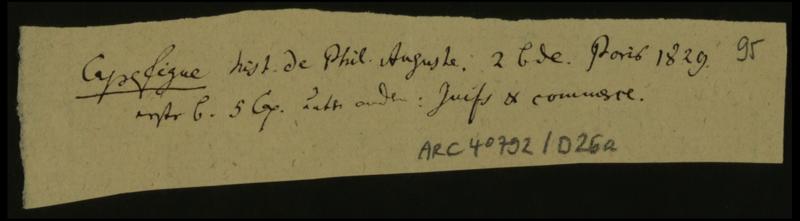 Capefigue hist. de Phil. Auguste. 2 bde. Paris 1829. 95
erste b. 5 Cp. unter andern: Juifs & commerce.
ARC 4º 792 / D26a